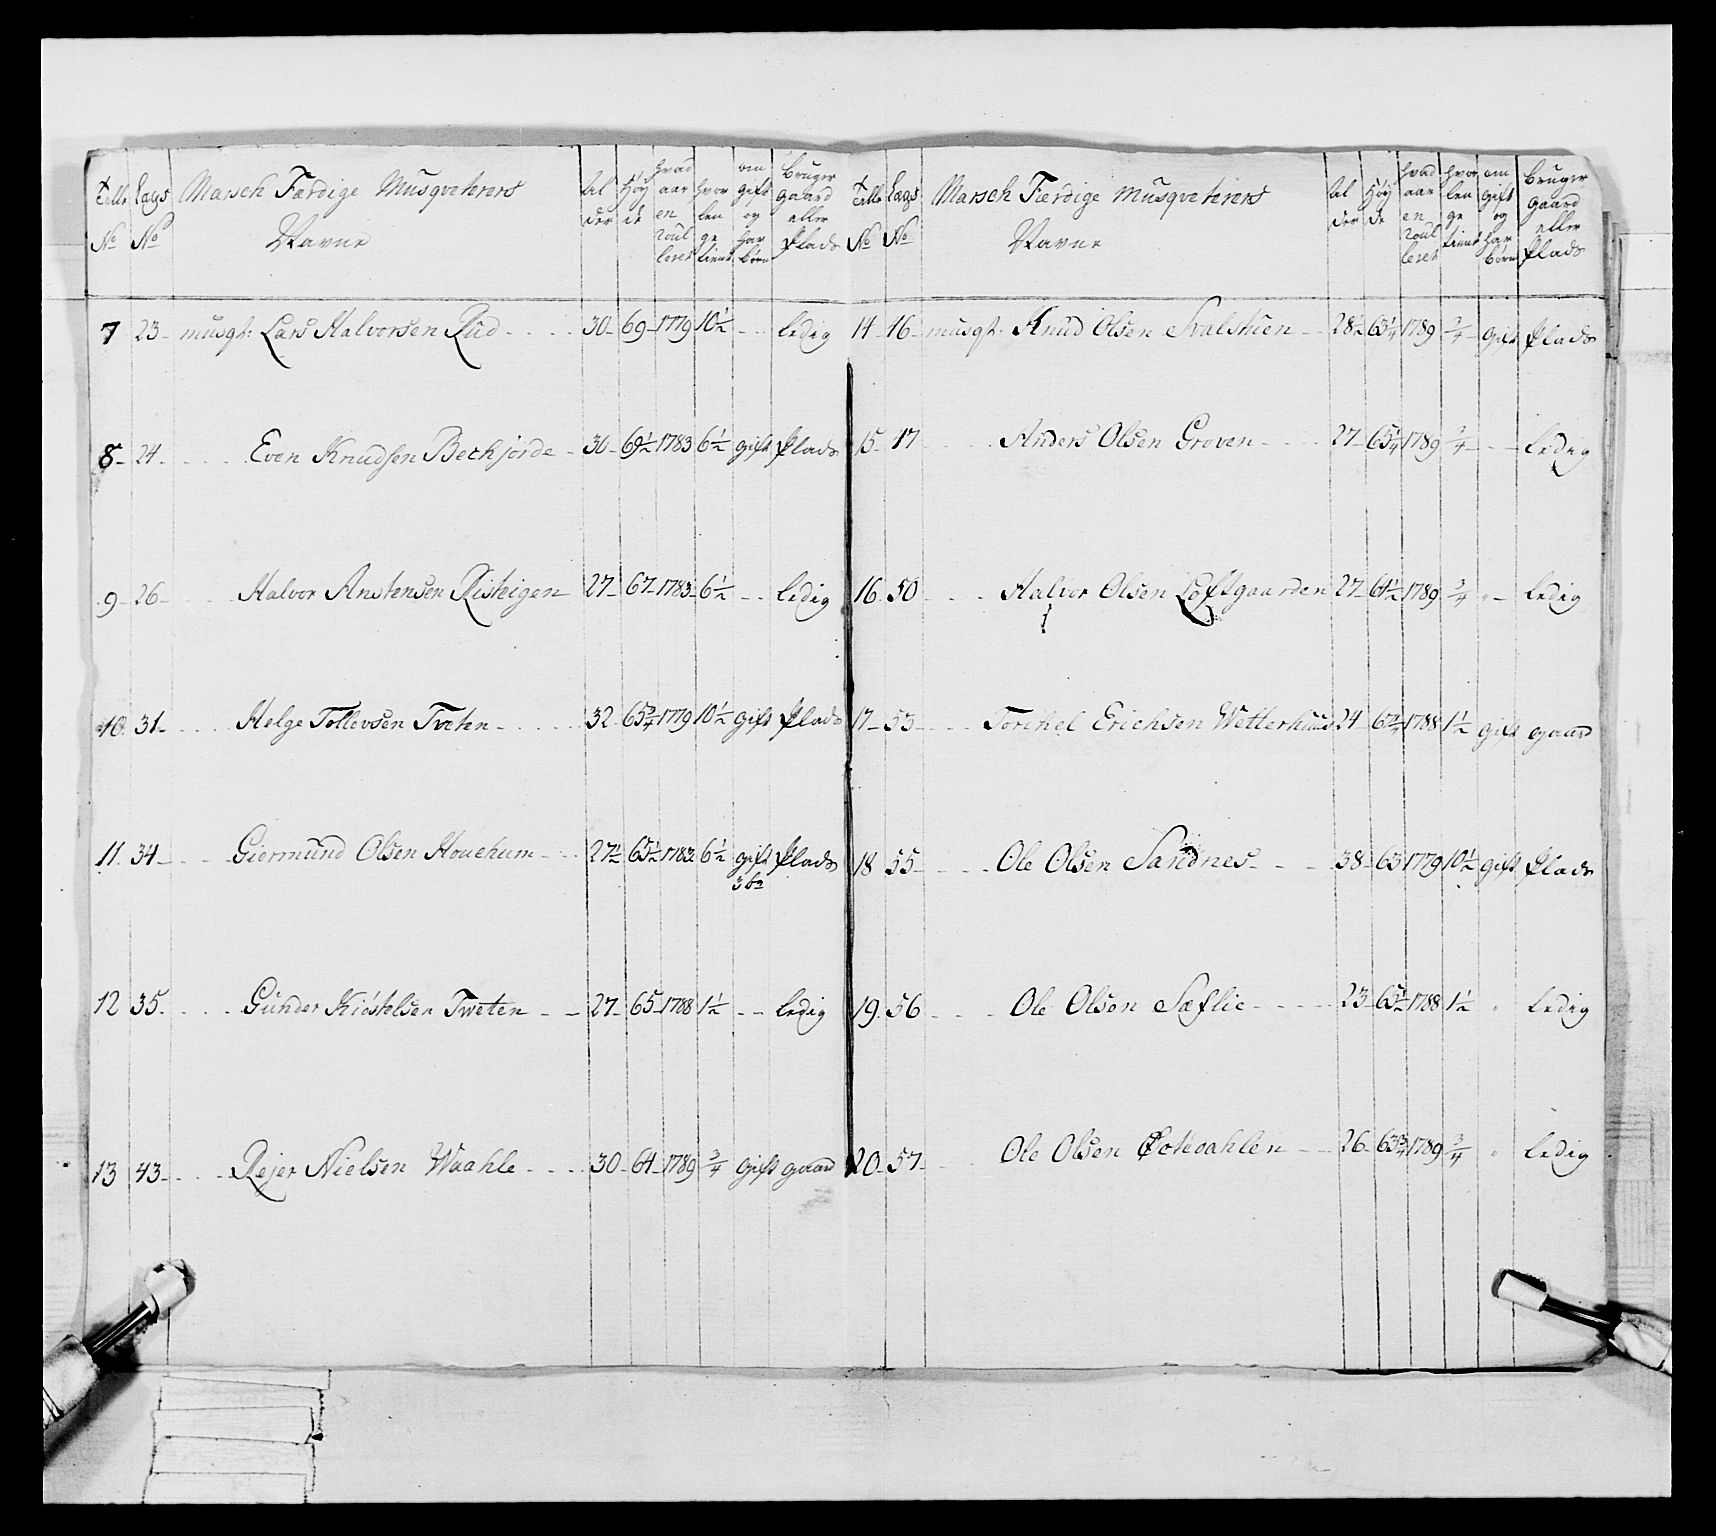 Telle No | Lægs No | Marsch Færdige Musqveterers Navne | Al der | Høy de | hvad aar en roul leret | hvor len ge tient | om gift og har børn | bruger gaard eller Plads
7 23 musqt: Lars Halvorsen Rud 30 69 1779 10½ - ledig
8 24 Even Knudsen Bechjorde 30 69½ 1783 6½ gift Plads
9 26 Halvor Anstensen Risteigen 27 67 1783 6½ - ledig
10 31 Helge Tollevsen Tveten 32 65¾ 1779 10½ gift Plads
11 34 Giermund Olsen Houehum 27½ 65½ 1783 6½ gift Plads
3 bø
12 35 Gunder Kiøstelsen Tweten 27 65 1788 1½ - ledig
13 43 Rejer Nielsen Waahle 30 64 1789 ¾ gift gaard
Telle No | Lægs No | Marsch Færdige Musqveterers Navne | Al der | Høy de | hvad aar en roul leret | hvor len ge tient | om gift og har børn | bruger gaard eller Plads
14 16 musqt: Knud Olsen Svalstuen 28½ 63¼ 1789 ¾ gift Plads
15 17 Anders Olsen Groven 27 65¼ 1789 ¾ - ledig
16 50 Halvor Olsen Loftgaarden 27 64½ 1789 ¾ " ledig
17 53 Torchel Erichsen Wetterhuus 24 67¾ 1788 1½ gift gaard
18 55 Ole Olsen Sandnes 38 63 1779 10½ gift Plads
19 56 Ole Olsen Sæflie 23 65½ 1788 1½ " ledig
20 57 Ole Olsen 26 63¾ 1789 ¾ " ledig